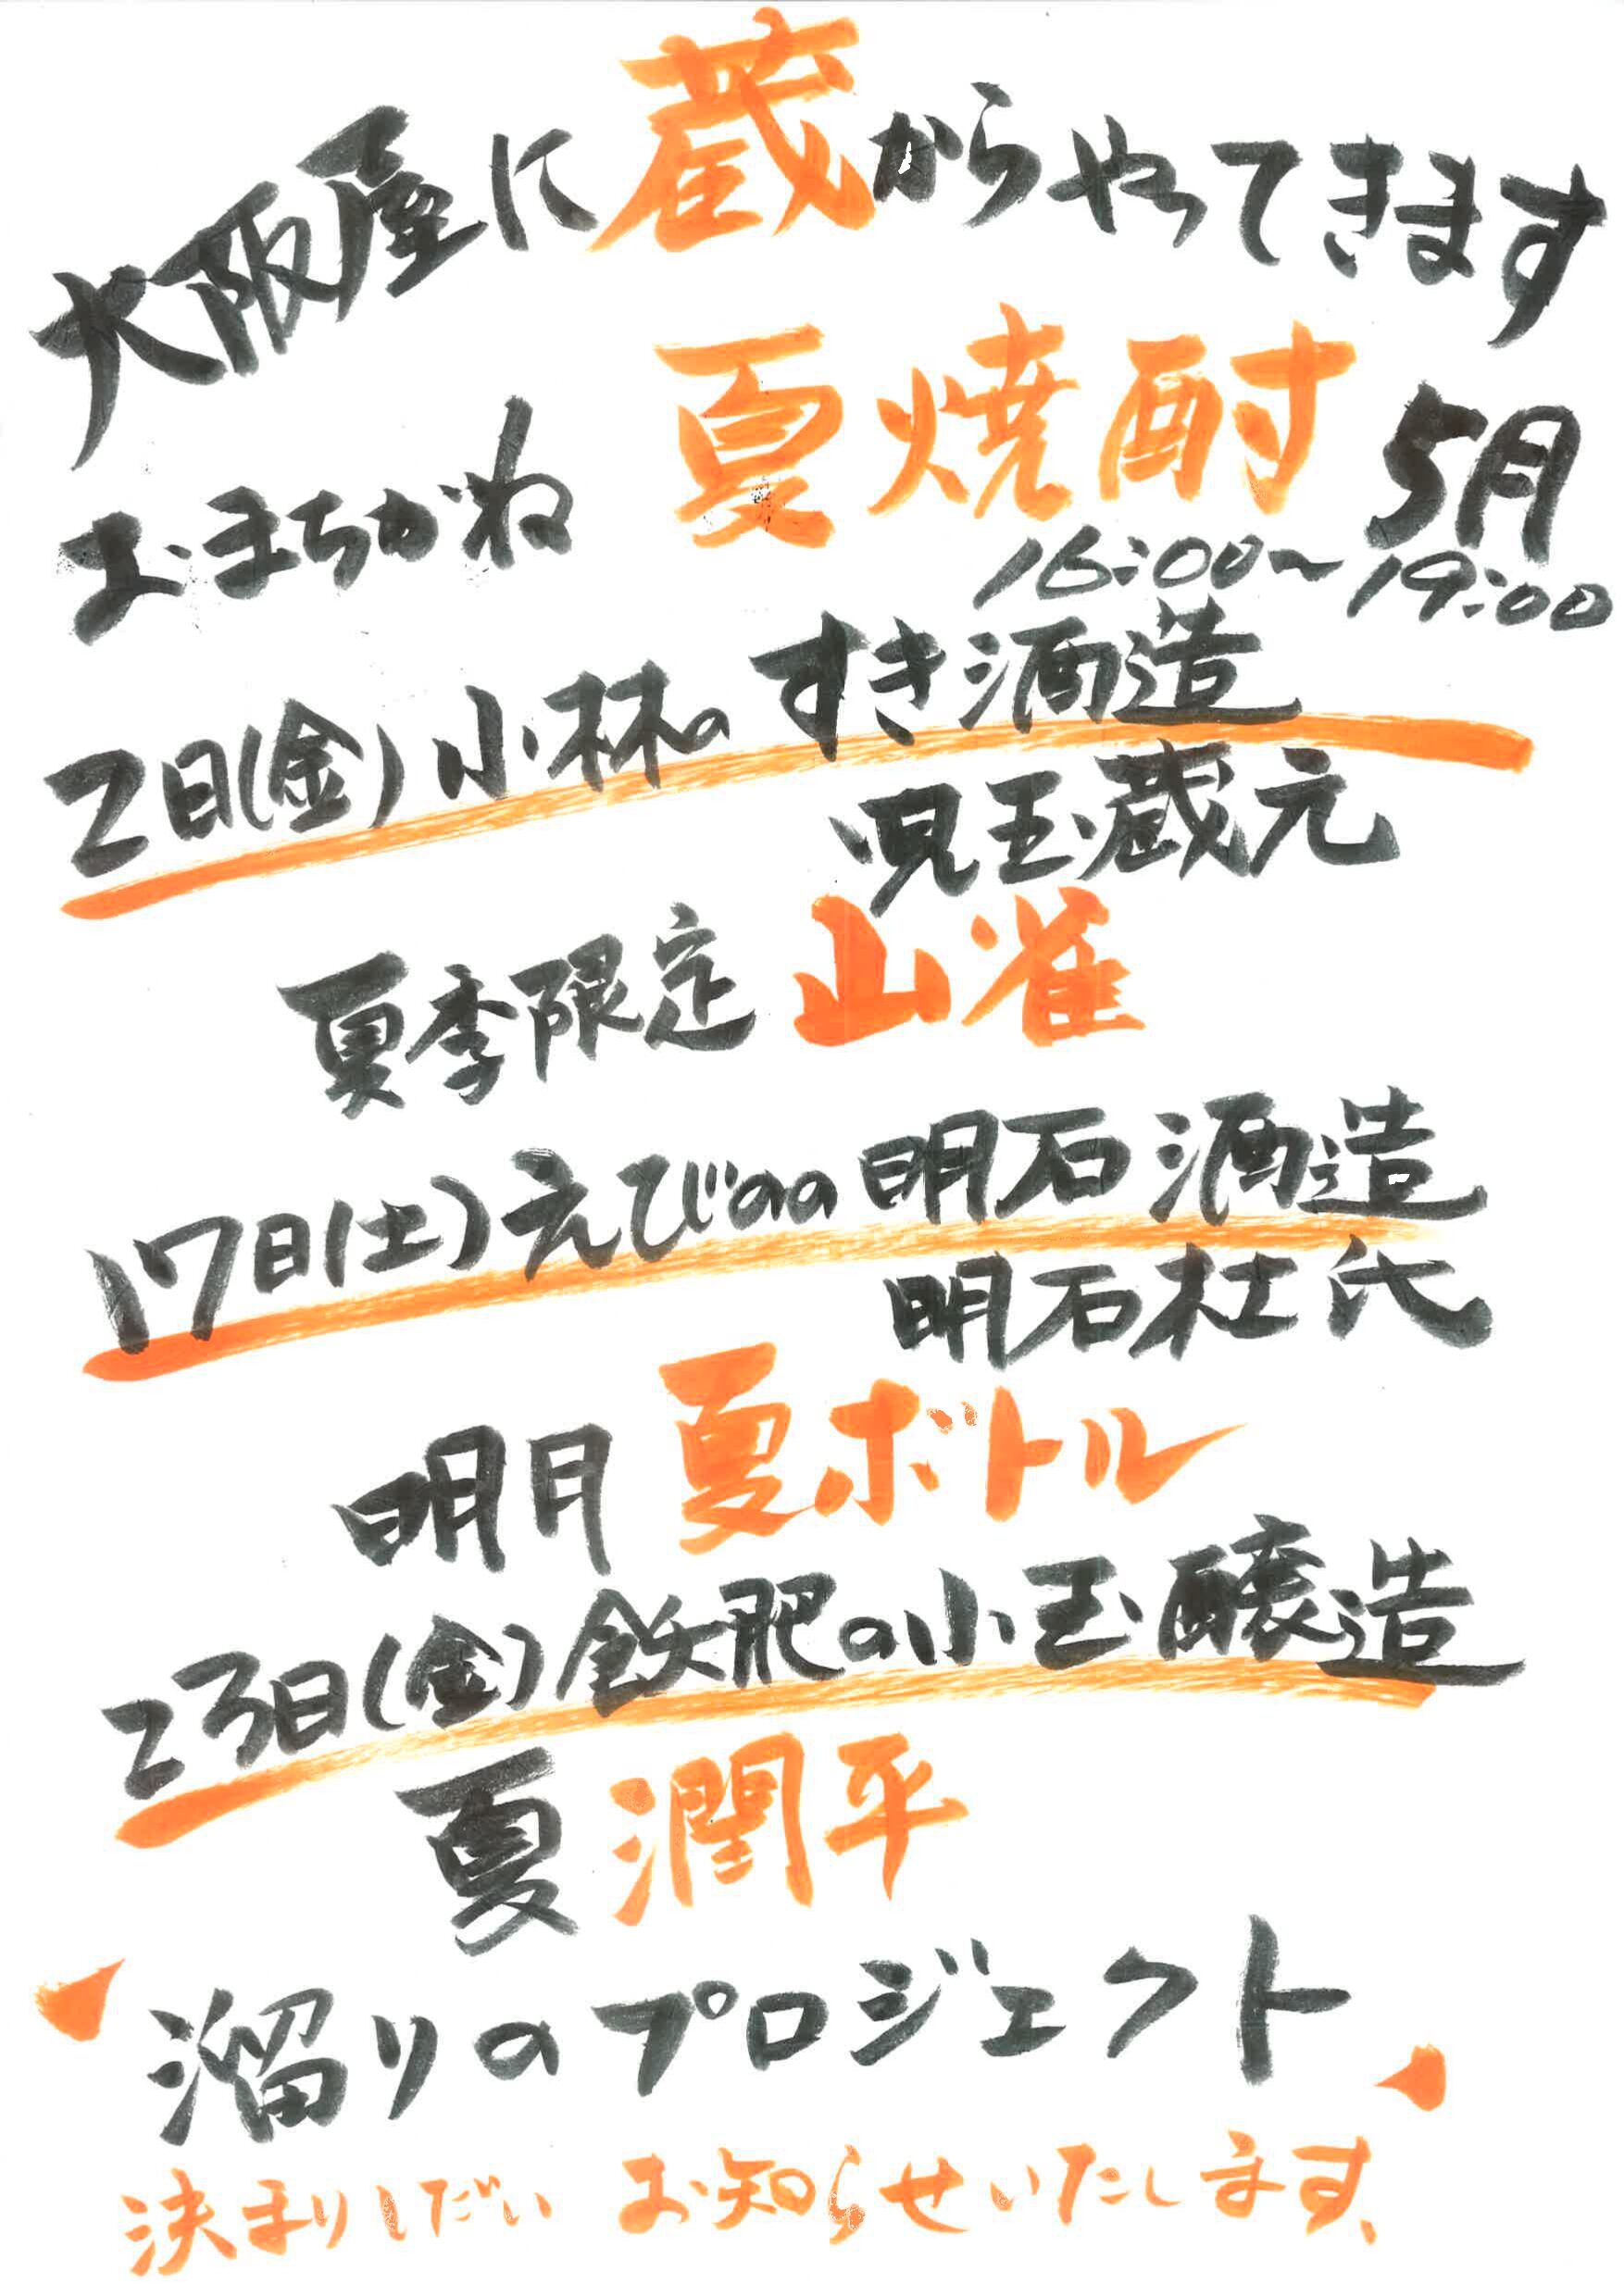 大阪屋に蔵からやってきます
おまちがね 夏焼酎 5月
16:00～19:00
2日(金)小林のすき酒造
児玉蔵元
夏季限定 山雀
17日(土)えびのの明石酒造
明石杜氏
明月 夏ボトル
23日(金)飫肥の小玉醸造
夏潤平
溜りのプロジェクト
決まりしだい お知らせいたします、